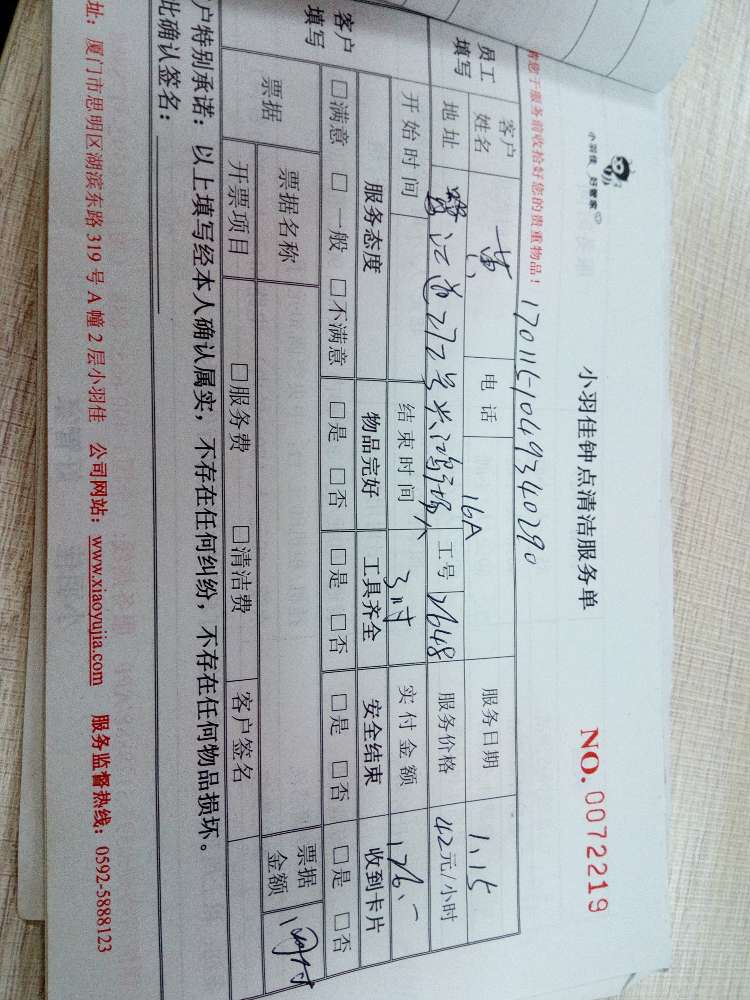 小羽佳 好管家
小羽佳钟点清洁服务单
NO. 0072219
请您于服务前收拾好您的贵重物品！
170115-1049340290
员工填写
客户姓名 黄 电话 服务日期 1.15
地址 272号 16A 工号 2648 服务价格 42元/小时
开始时间 结束时间 3时 实付金额 126.-
客户填写
服务态度 物品完好 工具齐全 安全结束 收到卡片
□满意 □一般 □不满意 □是 □否 □是 □否 □是 □否 □是 □否
票据 票据名称 票据金额
开票项目 □服务费 □清洁费 客户签名
户特别承诺：以上填写经本人确认属实，不存在任何纠纷，不存在任何物品损坏。
此确认签名：
址：厦门市思明区湖滨东路 319 号 A 幢 2 层小羽佳 公司网站：www.xiaoyujia.com 服务监督热线：0592-5888123